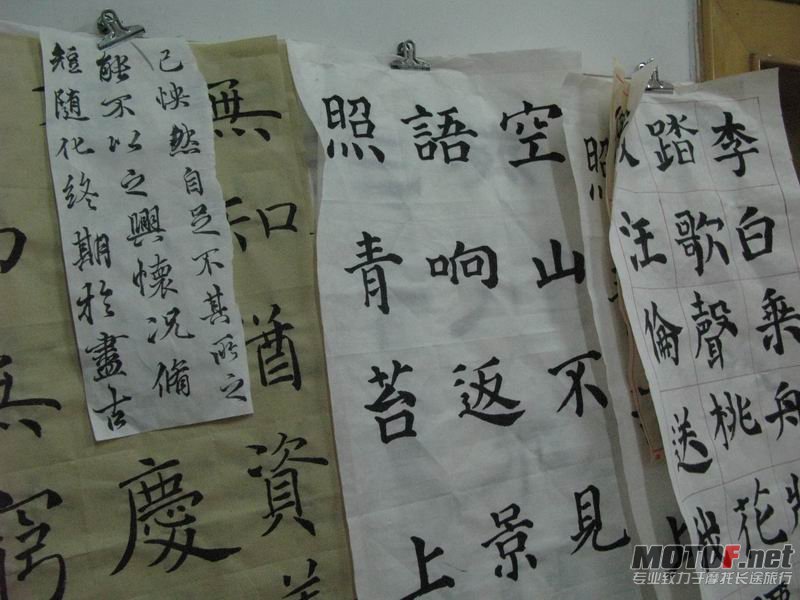 李白乘舟
踏歌聲桃花
汪倫送我
照
空山不見
語响返景
照青苔上
無
資
慶
己怏然自足不其所之
能不以之興懷況脩
短随化終期於盡古
無窮
MOTOF.net
专业致力于摩托长途旅行